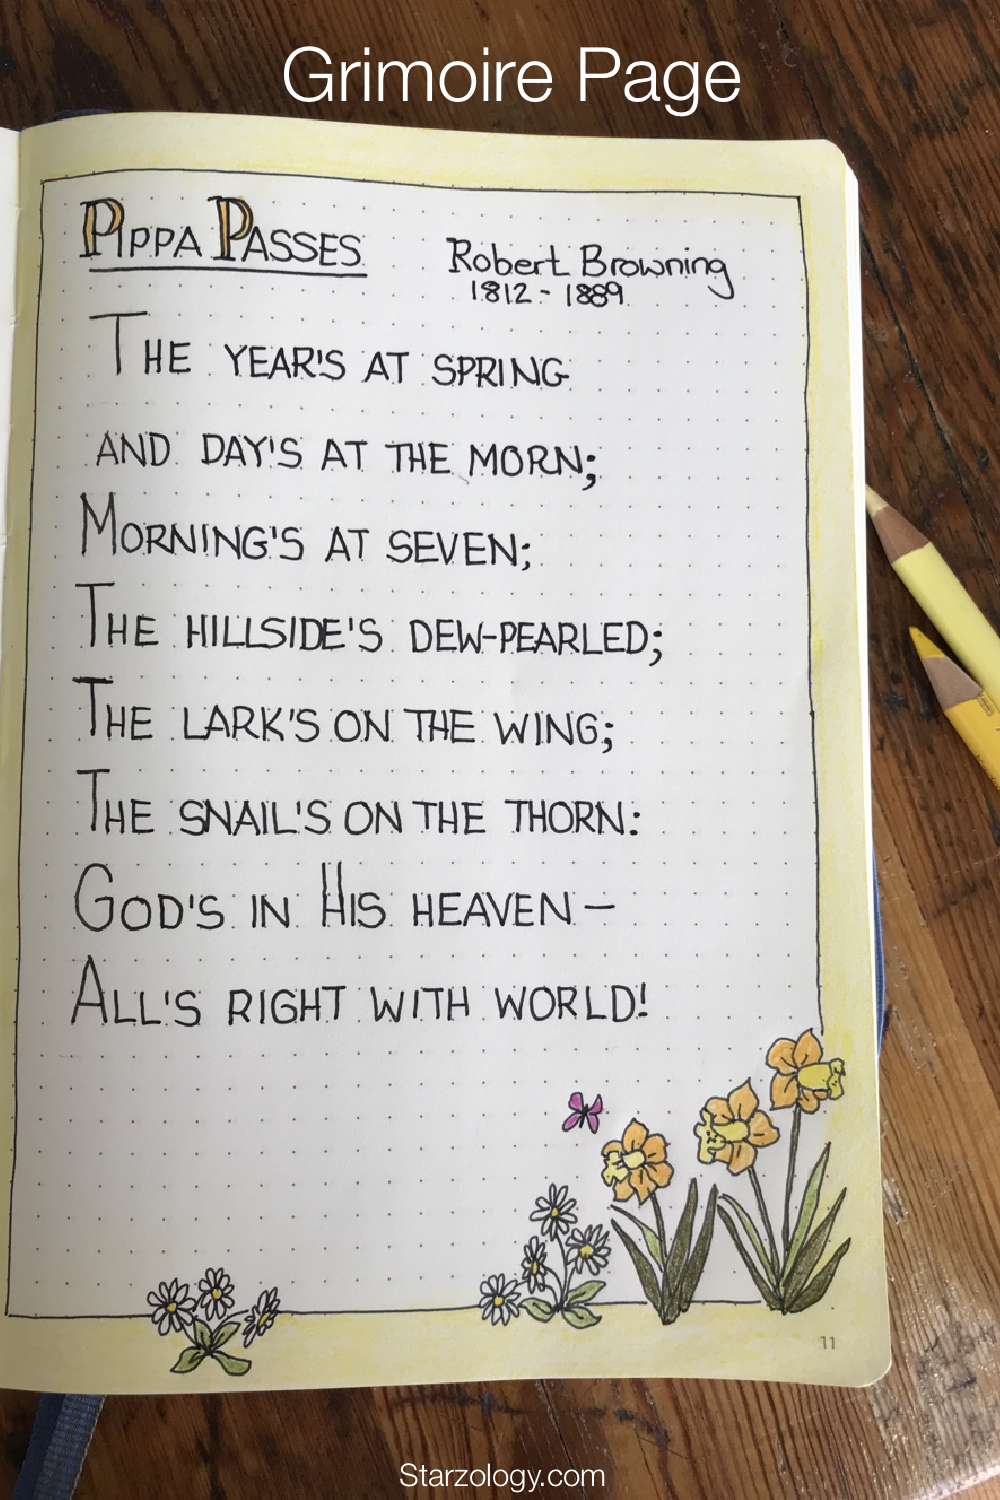 Grimoire Page
PIPPA PASSES
Robert Browning
1812 - 1889
THE YEAR'S AT SPRING
AND DAY'S AT THE MORN;
MORNING'S AT SEVEN;
THE HILLSIDE'S DEW-PEARLED;
THE LARK'S ON THE WING;
THE SNAIL'S ON THE THORN:
GOD'S IN HIS HEAVEN —
ALL'S RIGHT WITH WORLD!
11
Starzology.com